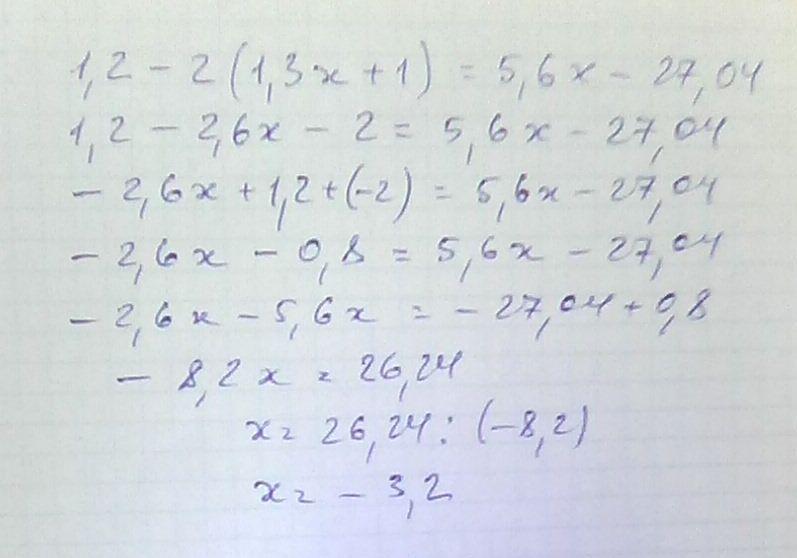 1,2 - 2(1,3x + 1) = 5,6x - 27,04
1,2 - 2,6x - 2 = 5,6x - 27,04
- 2,6x + 1,2 + (-2) = 5,6x - 27,04
- 2,6x - 0,8 = 5,6x - 27,04
- 2,6x - 5,6x = - 27,04 + 0,8
- 8,2x = 26,24
x = 26,24 : (-8,2)
x = - 3,2